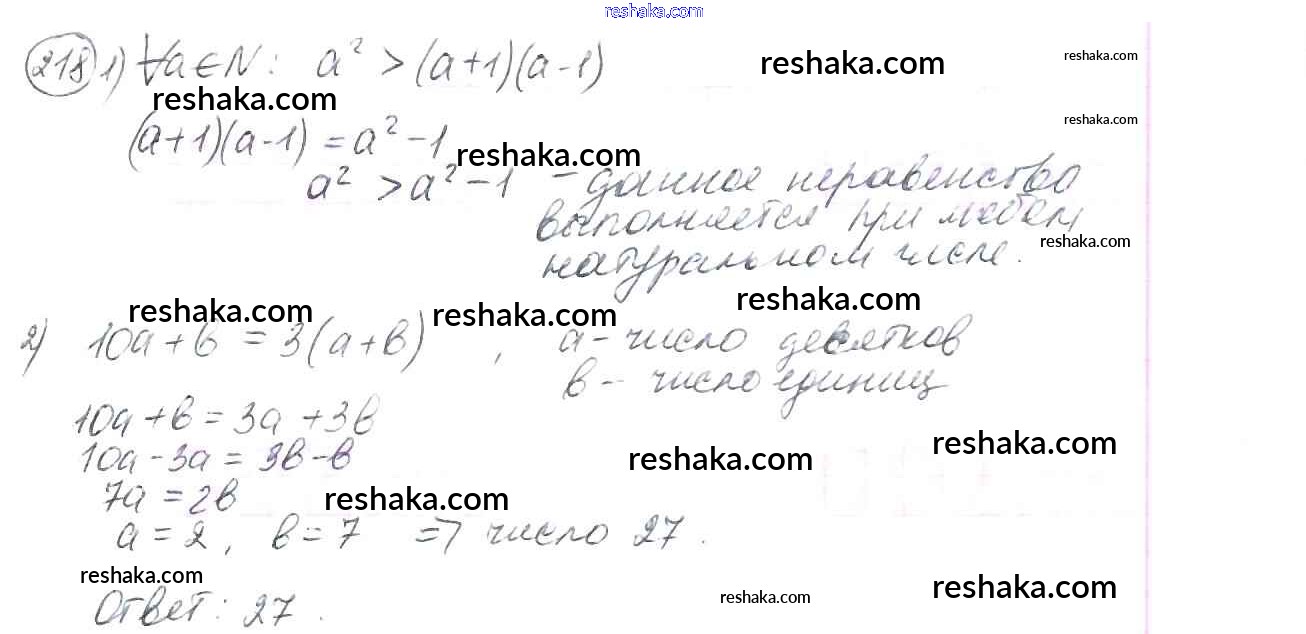 reshaka.com
218 1) ∀a∈N: a² > (a+1)(a-1)
reshaka.com
reshaka.com
reshaka.com
reshaka.com
(a+1)(a-1) = a² - 1
reshaka.com
a² > a² - 1 – данное неравенство
выполняется при любом
натуральном числе.
reshaka.com
reshaka.com
reshaka.com
reshaka.com
2) 10a + b = 3(a+b), a - число десятков
b - число единиц
10a + b = 3a + 3b
10a - 3a = 3b - b
reshaka.com
reshaka.com
7a = 2b
reshaka.com
a = 2, b = 7 => число 27.
reshaka.com
reshaka.com
reshaka.com
Ответ: 27.